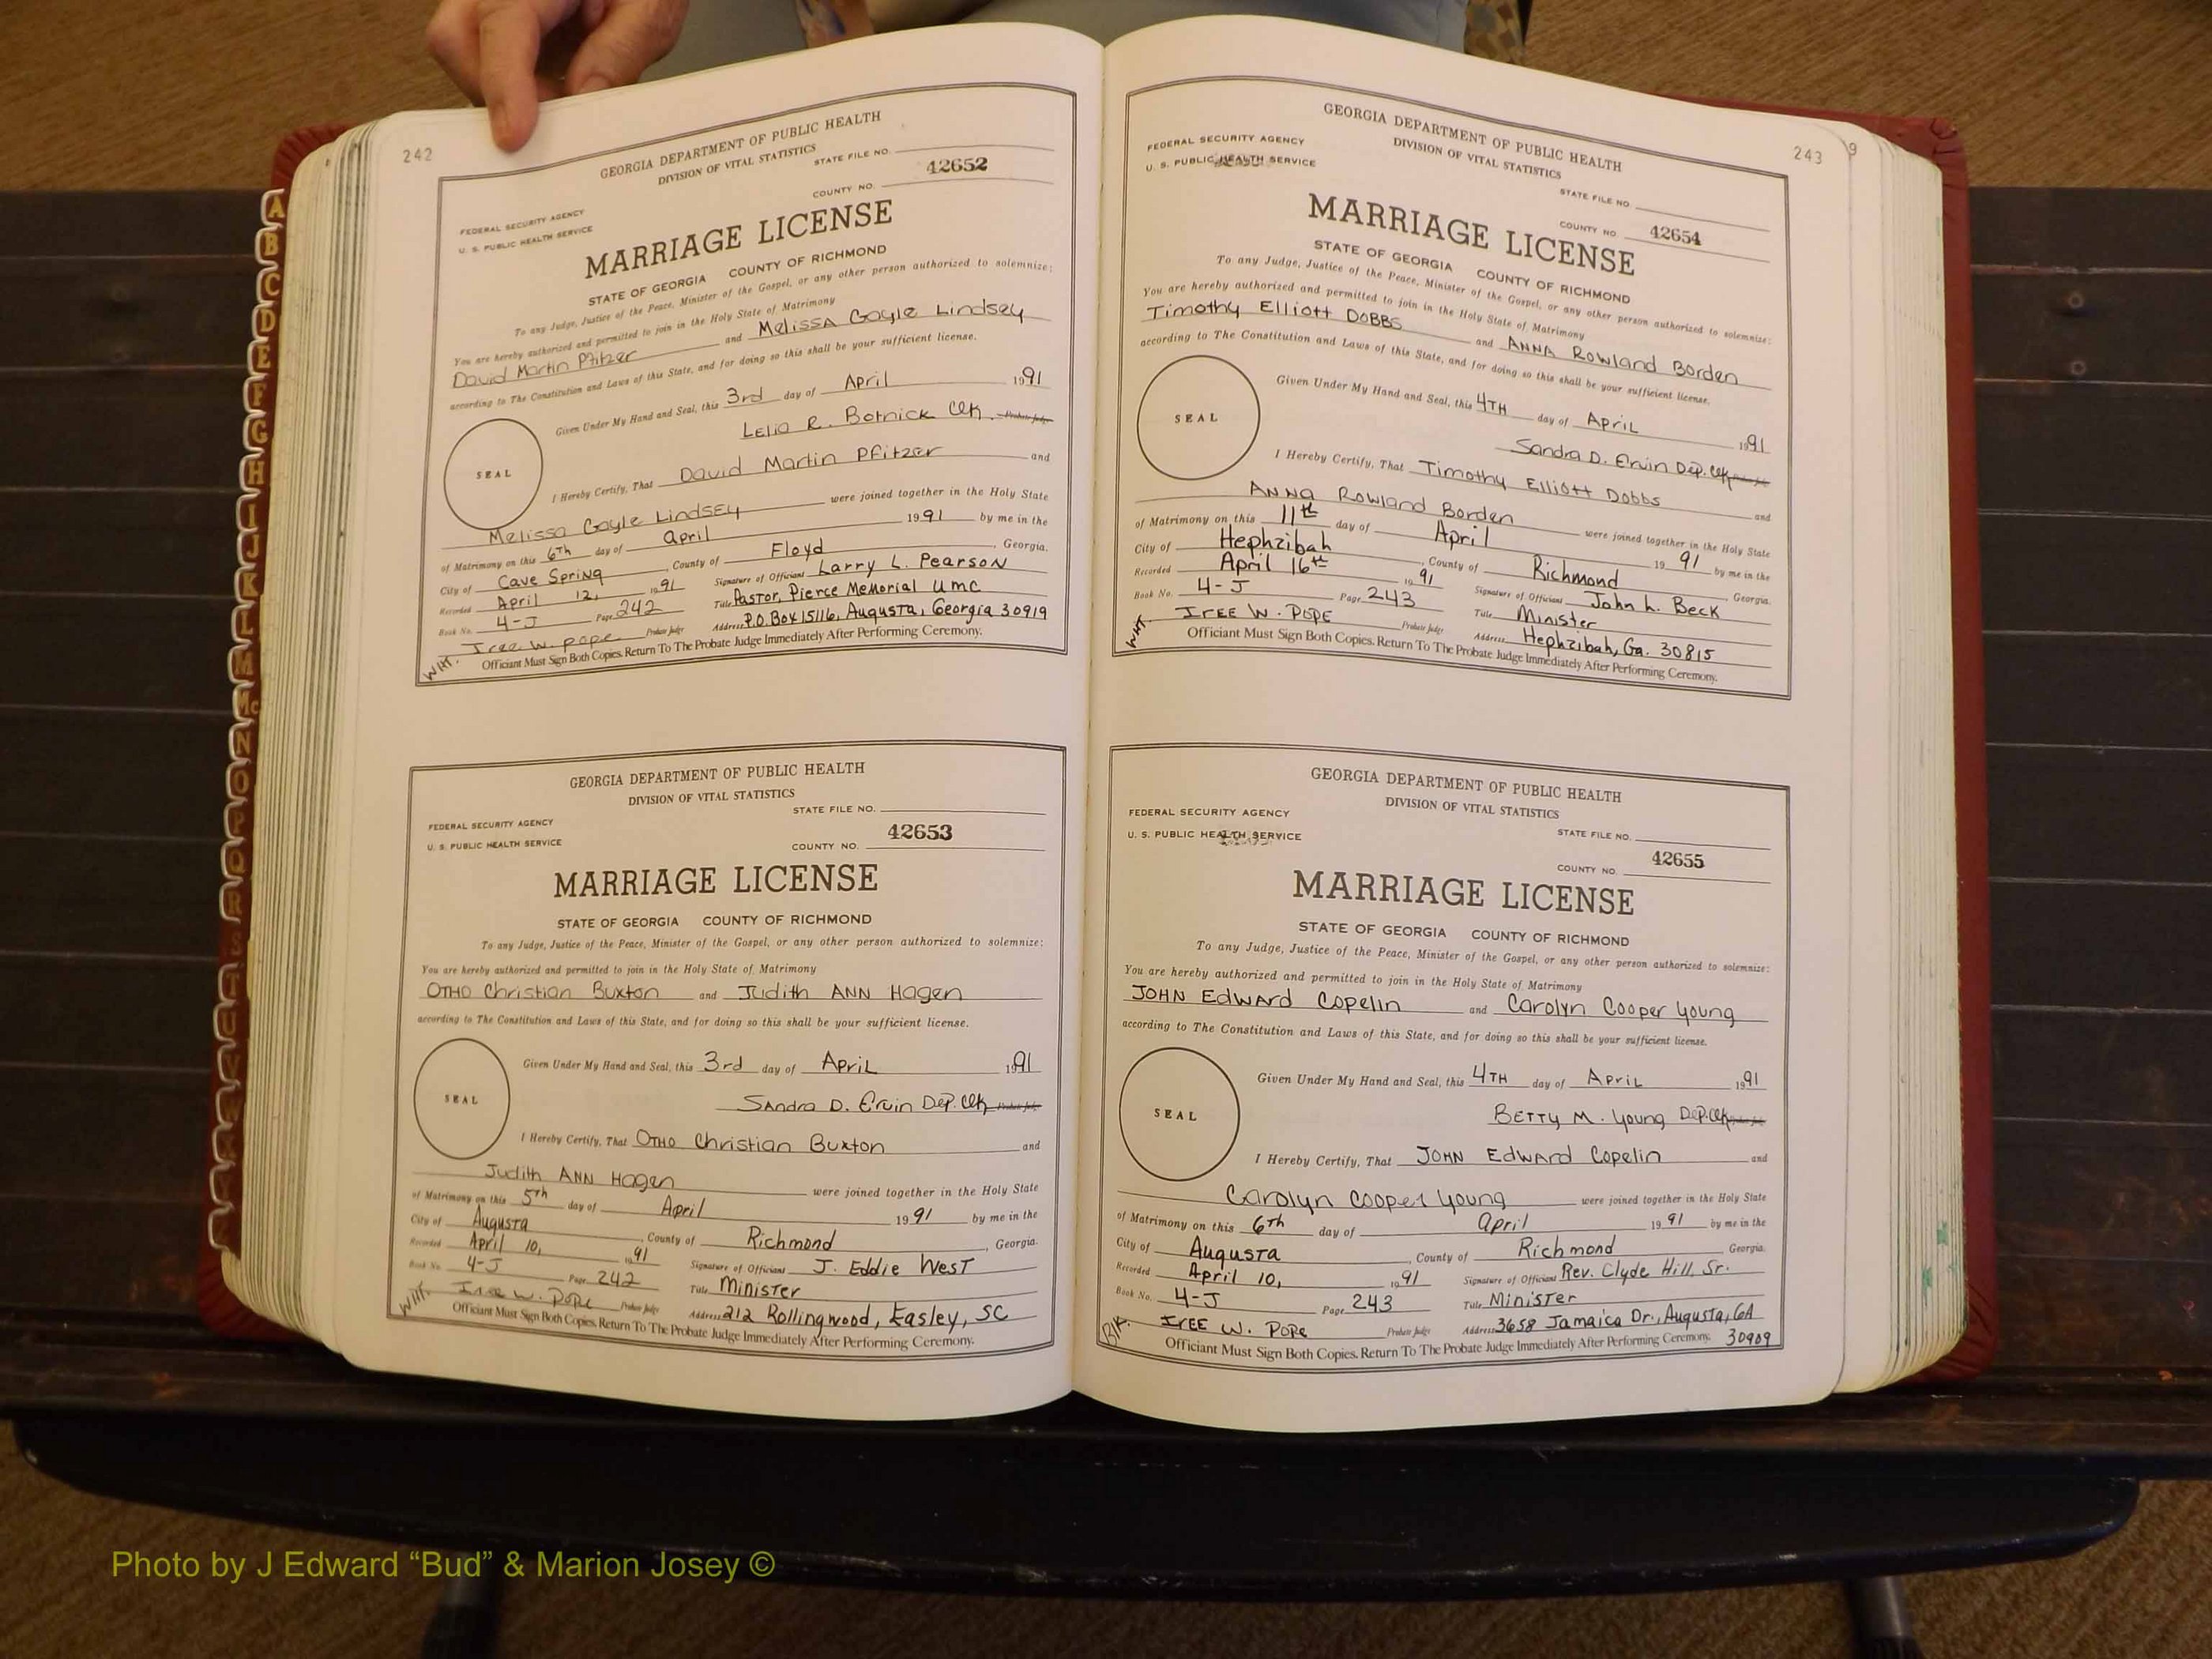 242
GEORGIA DEPARTMENT OF PUBLIC HEALTH
DIVISION OF VITAL STATISTICS
STATE FILE NO.
42652
COUNTY NO.
FEDERAL SECURITY AGENCY
U. S. PUBLIC HEALTH SERVICE
MARRIAGE LICENSE
STATE OF GEORGIA COUNTY OF RICHMOND
To any Judge, Justice of the Peace, Minister of the Gospel, or any other person authorized to solemnize:
You are hereby authorized and permitted to join in the Holy State of Matrimony
David Martin Pfitzer and Melissa Gayle Lindsey
according to The Constitution and Laws of this State, and for doing so this shall be your sufficient license.
Given Under My Hand and Seal, this 3rd day of April 1991
Lelia R. Botnick Clk. Probate Judge
SEAL
I Hereby Certify, That David Martin Pfitzer and
Melissa Gayle Lindsey were joined together in the Holy State
of Matrimony on this 6th day of april 1991 by me in the
City of Cave Spring, County of Floyd, Georgia.
Recorded April 12, 1991 Signature of Officiant Larry L. Pearson
Book No. 4-J Page 242 Title Pastor, Pierce Memorial UMC
Iree W. Pope Probate Judge Address P.O. Box 15116, Augusta, Georgia 30919
WHT. Officiant Must Sign Both Copies. Return To The Probate Judge Immediately After Performing Ceremony.
GEORGIA DEPARTMENT OF PUBLIC HEALTH
DIVISION OF VITAL STATISTICS
STATE FILE NO.
FEDERAL SECURITY AGENCY
42653
U. S. PUBLIC HEALTH SERVICE
COUNTY NO.
MARRIAGE LICENSE
STATE OF GEORGIA COUNTY OF RICHMOND
To any Judge, Justice of the Peace, Minister of the Gospel, or any other person authorized to solemnize:
You are hereby authorized and permitted to join in the Holy State of Matrimony
OTHO Christian Buxton and Judith ANN Hagen
according to The Constitution and Laws of this State, and for doing so this shall be your sufficient license.
Given Under My Hand and Seal, this 3rd day of April 1991
Sandra D. Ervin Dep. Clk Probate Judge
SEAL
I Hereby Certify, That OTHO Christian Buxton and
Judith ANN Hagen were joined together in the Holy State
of Matrimony on this 5th day of April 1991 by me in the
City of Augusta, County of Richmond, Georgia.
Recorded April 10, 1991 Signature of Officiant J. Eddie West
Book No. 4-J Page 242 Title Minister
Iree W. Pope Probate Judge Address 212 Rollingwood, Easley, SC
WHT. Officiant Must Sign Both Copies. Return To The Probate Judge Immediately After Performing Ceremony.
243
9
GEORGIA DEPARTMENT OF PUBLIC HEALTH
DIVISION OF VITAL STATISTICS
FEDERAL SECURITY AGENCY
U. S. PUBLIC HEALTH SERVICE
STATE FILE NO.
COUNTY NO. 42654
MARRIAGE LICENSE
STATE OF GEORGIA COUNTY OF RICHMOND
To any Judge, Justice of the Peace, Minister of the Gospel, or any other person authorized to solemnize:
You are hereby authorized and permitted to join in the Holy State of Matrimony
Timothy Elliott DOBBS and ANNA Rowland Borden
according to The Constitution and Laws of this State, and for doing so this shall be your sufficient license.
Given Under My Hand and Seal, this 4TH day of April 1991
Sandra D. Ervin Dep. Clk Probate Judge
SEAL
I Hereby Certify, That Timothy Elliott Dobbs and
ANNA Rowland Borden were joined together in the Holy State
of Matrimony on this 11th day of April 1991 by me in the
City of Hephzibah, County of Richmond, Georgia.
Recorded April 16th 1991 Signature of Officiant John L. Beck
Book No. 4-J Page 243 Title Minister
IREE W. POPE Probate Judge Address Hephzibah, Ga. 30815
WHT. Officiant Must Sign Both Copies. Return To The Probate Judge Immediately After Performing Ceremony.
GEORGIA DEPARTMENT OF PUBLIC HEALTH
DIVISION OF VITAL STATISTICS
FEDERAL SECURITY AGENCY
U. S. PUBLIC HEALTH SERVICE
STATE FILE NO.
42655
COUNTY NO.
MARRIAGE LICENSE
STATE OF GEORGIA COUNTY OF RICHMOND
To any Judge, Justice of the Peace, Minister of the Gospel, or any other person authorized to solemnize:
You are hereby authorized and permitted to join in the Holy State of Matrimony
JOHN Edward Copelin and Carolyn Cooper Young
according to The Constitution and Laws of this State, and for doing so this shall be your sufficient license.
Given Under My Hand and Seal, this 4TH day of April 1991
BETTY M. Young Dep. Clk Probate Judge
SEAL
I Hereby Certify, That JOHN Edward Copelin and
Carolyn Cooper Young were joined together in the Holy State
of Matrimony on this 6th day of april 1991 by me in the
City of Augusta, County of Richmond Georgia.
Recorded April 10, 1991 Signature of Officiant Rev. Clyde Hill, Sr.
Book No. 4-J Page 243 Title Minister
IREE W. Pope Probate Judge Address 3658 Jamaica Dr., Augusta, GA
BLK. Officiant Must Sign Both Copies. Return To The Probate Judge Immediately After Performing Ceremony. 30909
A
B
C
D
E
F
G
H
I
J
K
L
M
Mc
N
O
P
Q
R
S
T
U
V
W
Photo by J Edward “Bud” & Marion Josey ©